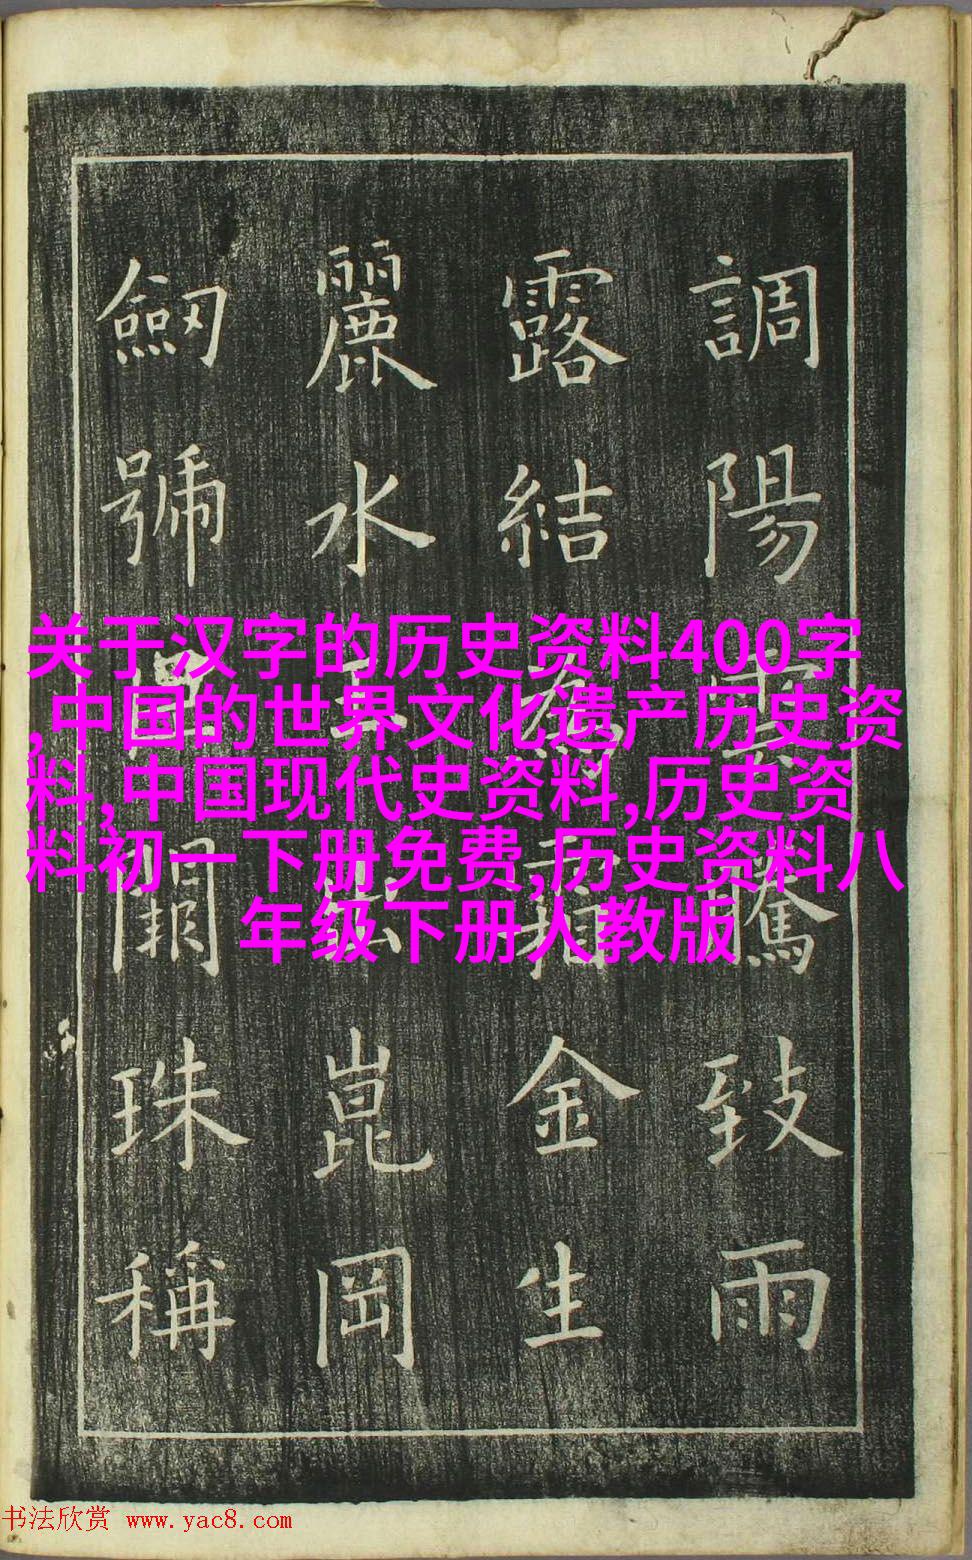 調陽雲騰致雨
露結為霜金生
麗水崑岡
劒號闕珠稱
关于汉字的历史资料400字
,中国的世界文化遗产历史资
料,中国现代史资料,历史资
料初一下册免费,历史资料八
年级下册人教版
书法欣赏 www.yac8.com